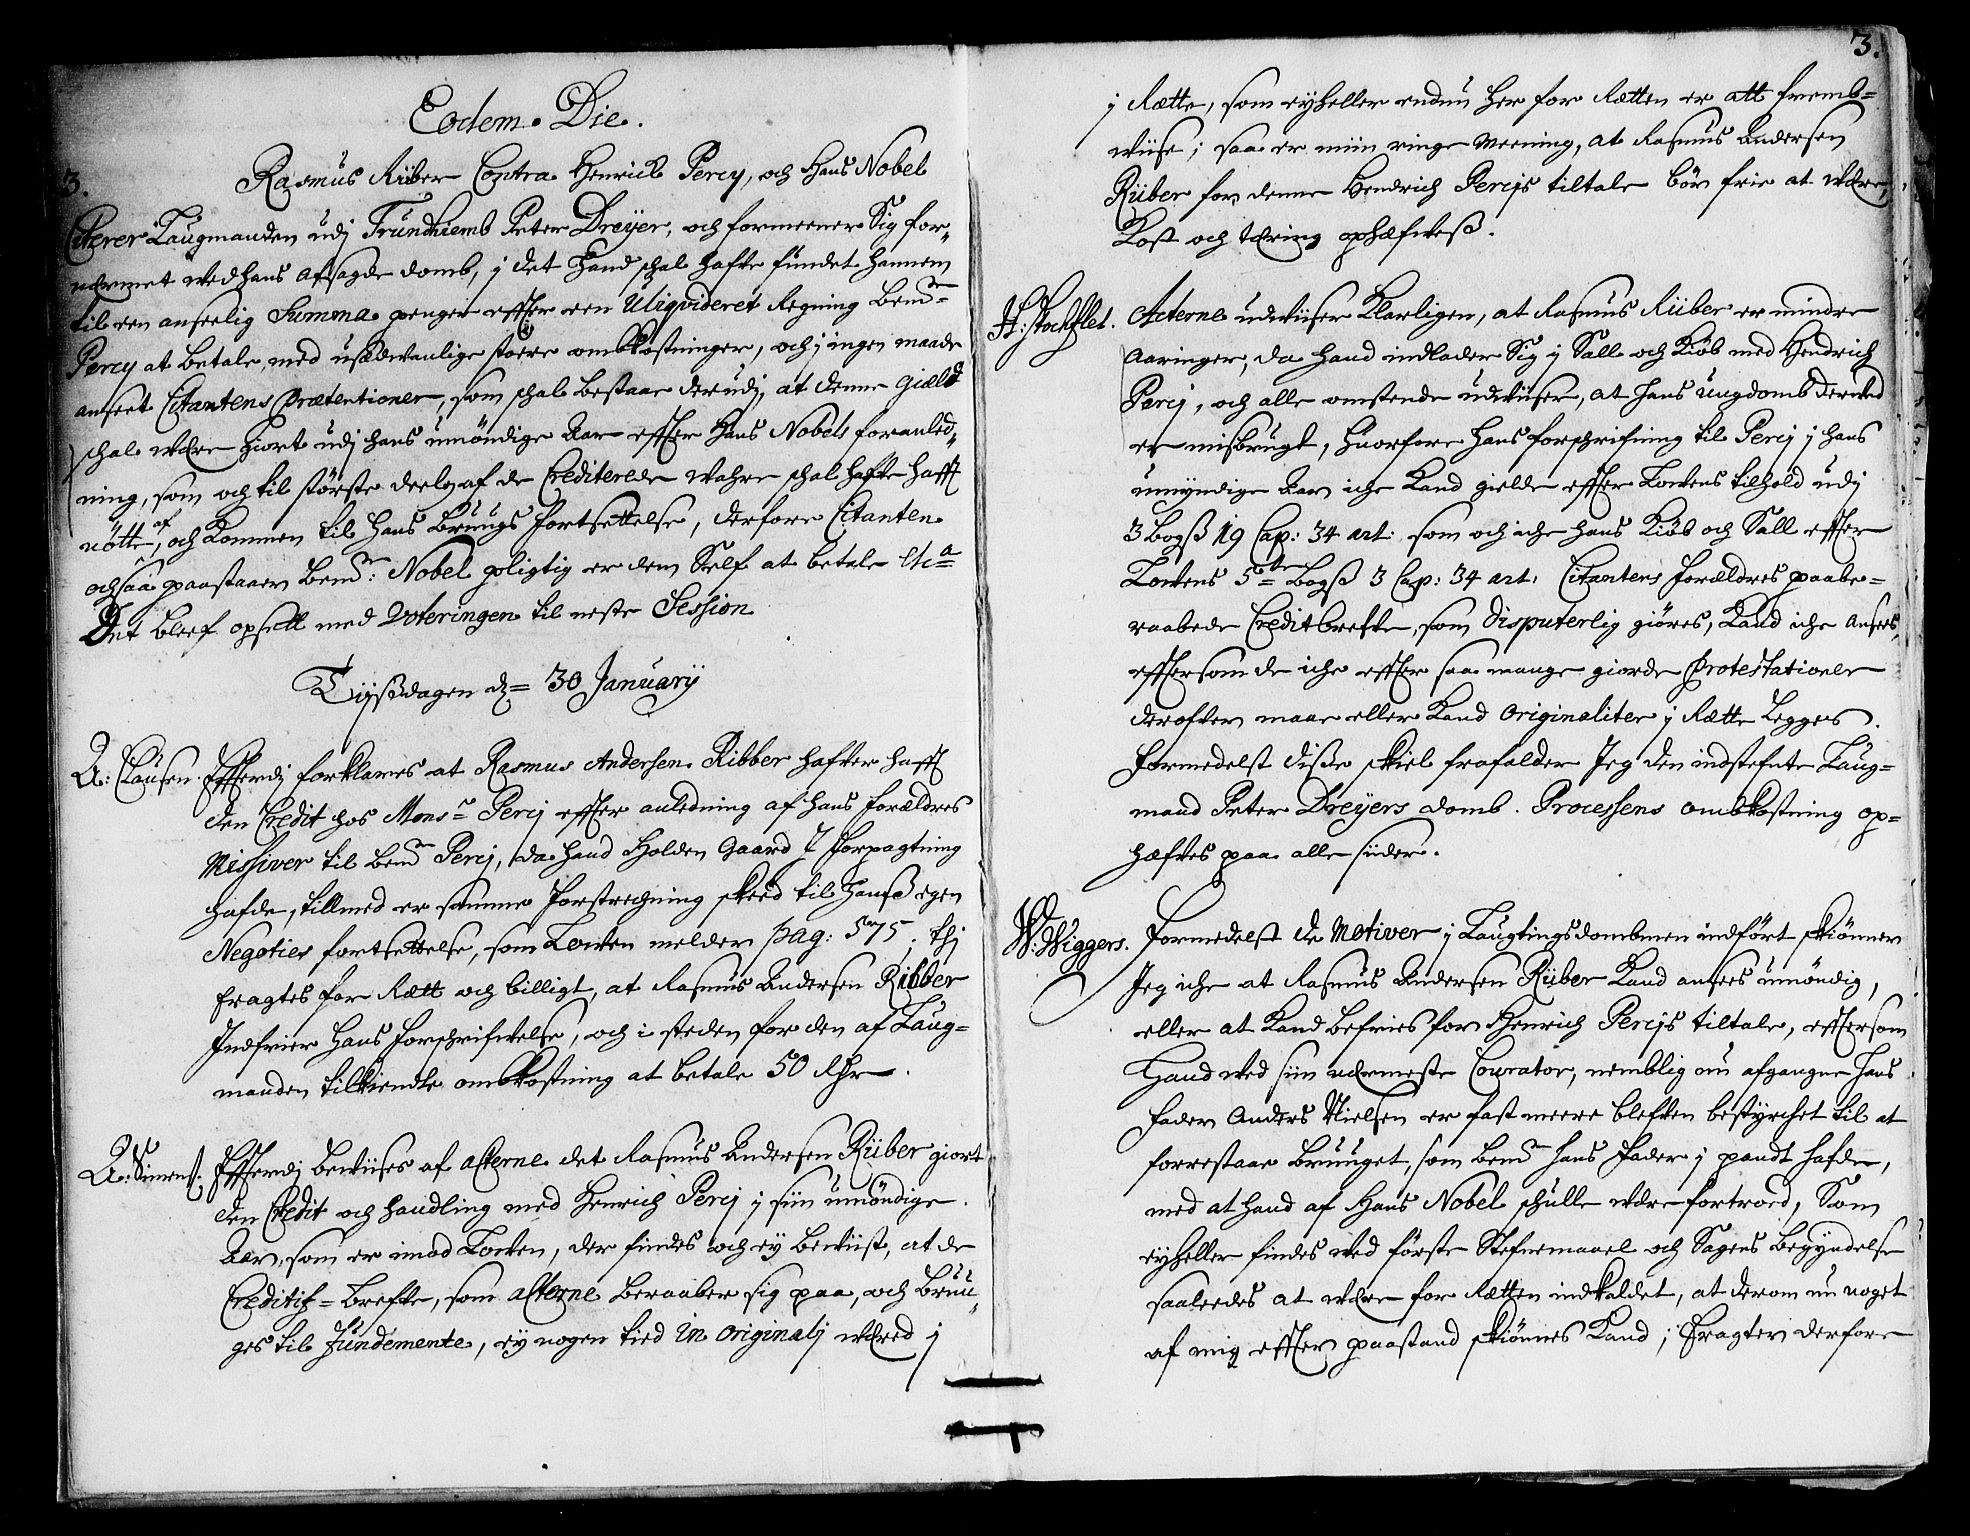 Eodem Die.
3.
Rasmus Riber Contra Henrick Percy, och Hans Nobel
Citerer Laugmanden udj Trundhiemb Peter Dreyer, och formeener Sig for„
nermet wed hans afsagde domb, j det Hand schal hafve fundet hannem
til een anseelig Summa penger effter een Uliqvideret Regning bemte
Percy at betale, med usædwanlige stoere ombkostninger, och j ingen maade
anseet Citantens Prætentioner, som schal bestaae derudj, at denne Giæld
schal wære giort udj hans umöndige Aar effter Hans Nobels foranled„
ning, som och til störste deelen af de Crediterede wahre schal hafve hafft
nötte af, och kommen til hans Bruugs fortsettelse, derfore Citanten
ochsaa paastaaer bemte: Nobel pligtig er dem Self at betale etca
Det bleef opsett med Voteringen til neste Session
Tyssdagen dn 30 January
A: Clausen. Effterdj forklares at Rasmus Andersen Ribber hafver hafft
den Credit hos Monsr Percj effter anledning af hans forældres
Missiver til bemte Percj, da hand Holden Gaard J forpagtning
hafde, tillmed er samme forstrechning skeed til hanss egen
Negoties fortsettelse, som Lowen melder pag: 575, thj
Eragtes for Rætt och billigt, at Rasmus Andersen Ribber
Indfrier hans forschrifvelse, och i steden for den af Laug=
manden tilkiendte ombkostning at betale 50 Rdr
A: Simens. Effterdj bewiises af acterne det Rasmus Andersen Riiber giort
den Credit och handling med Henrich Percj j siin umöndige
Aar, som er imod Lowen, der findes och ey bewiist, at de
Creditif=brefve, som acterne beraaber sig paa, och bruu„
ges til fundamente, ey nogen tied in originalj wæred j
3.
j Rætte, som ey heller endnu her for Retten er att fremb=
wiise; saa er miin ringe meening, at Rasmus Andersen
Riiber for denne Hendrich Percijs tiltale bör frie at være,
Kost och tæring ophæfvess.
H: Stockflet. Acterne udwiiser klarligen, at Rasmus Riiber er mindre
aaringer, da hand indlader Sig j Sall och Kiöb med Hendrich
Percj, och alle omstende udwiiser, at hans ungdomb derwed
er misbrugt, huorfore hans forschrifning til Percj j hans
umyndige Aar iche kand gielde effter Lowens tilhold udj
3 bogss 19 Cap: 34 art: som och iche hans Kiöb och Sall effter
Lowens 5te bogss 3 Cap: 34 art: Citantens forældres paabe=
raabede Creditbrefve, som disputerlig giöres, kand iche ansees,
efftersom de iche effter saa mange giorde Protestationer
derofver maae eller kand originaliter j Rætte legges.
Formedelst disse skiel frafalder Jeg den indstefnte Laug=
mand Peter Dreyers domb. Processens ombkostning op=
hæfves paa alle siider.
W: Wiggers. Formedelst de motiver j Laugtingsdombmen indfört skiönner
Jeg iche at Rasmus Andersen Riiber kand ansees umöndig,
eller at kand befries for Henrich Percijs tiltale, effersom
Hand wed siin nærmeste Courator, nemblig nu afgangne hans
fader Anders Nielsen er fast meere blefven bestyrchet til at
forrestaae Bruuget, som bemte hans Fader j pandt hafde,
med at hand af Hans Nobel schulle være fortroed, Som
ey heller findes wed förste Stefnemaael och Sagens begyndelse
saaleedes at være for Rætten indkaldet, at derom nu noget
af mig effter paastand skiönnes kand; Eragter derfore